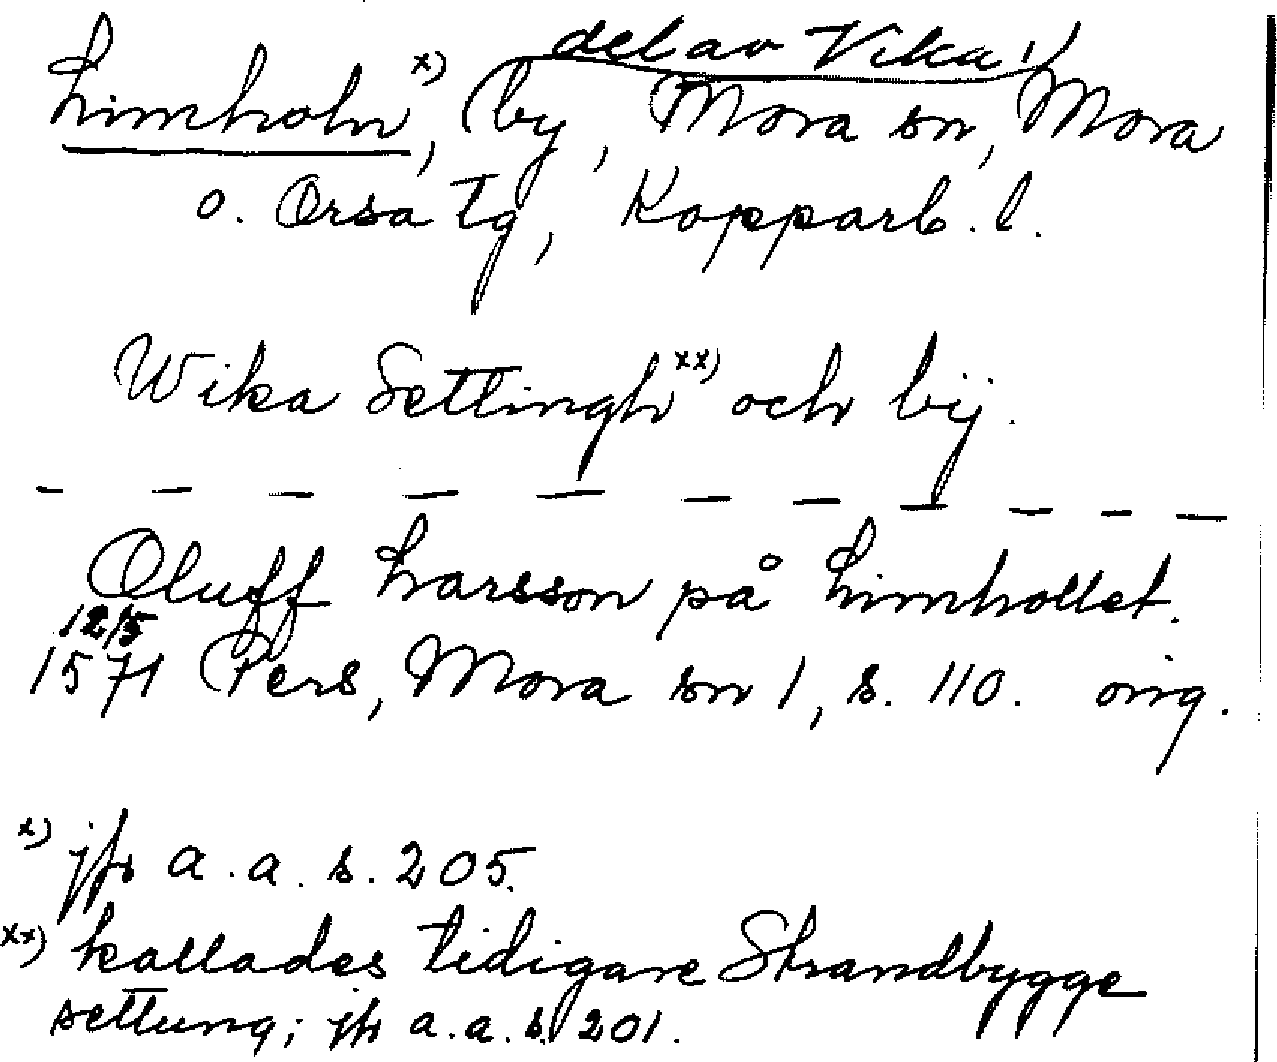 del av Vika!
Limholn x), (by, Mora sn, Mora
o. Orsa tg, Kopparb. l.
Wika Settingh xx) och bij.
— — — — — — — — — — —
Oluff Larsson på Limhollet.
12/5
1571 Pers, Mora sn 1, s. 110. orig.
x) jfr a.a. s. 205.
xx) kallades tidigare Strandbygge
settung; jfr a.a. s. 201.